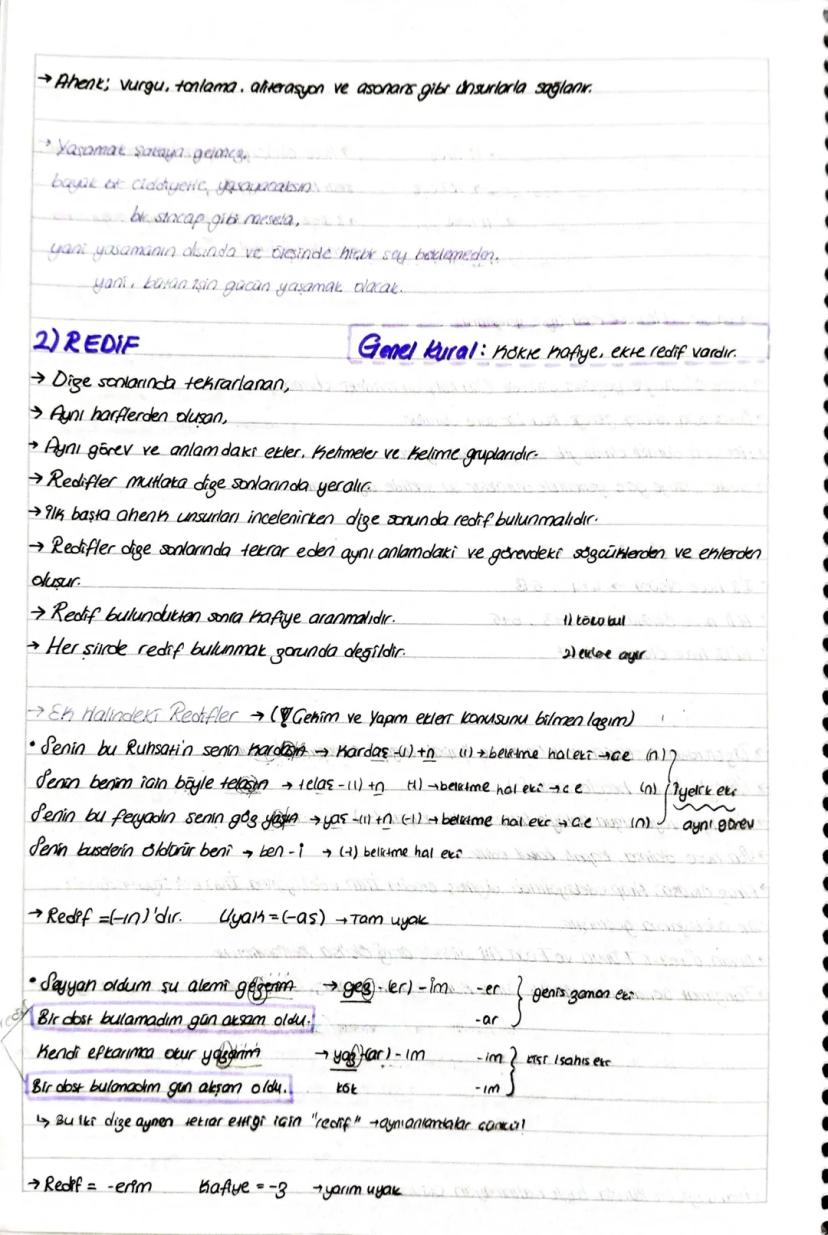 → Ahenk; vurgu, tonlama, aliterasyon ve asonans gibi unsurlarla sağlanır.
→ Yaşamak şakaya gelmez,
büyük bir ciddiyetle, yaşayacaksın
bir sincap gibi mesela,
yani yaşamanın dışında ve ötesinde hiçbir şey beklemeden,
yani, bütün işin gücün yaşamak olacak.
2) REDİF
Genel Kural: Kökte kafiye, ekte redif vardır.
→ Dize sonlarında tekrarlanan,
→ Aynı harflerden oluşan,
→ Aynı görev ve anlamdaki ekler, kelimeler ve kelime gruplarıdır.
→ Redifler mutlaka dize sonlarında yer alır.
→ İlk başta ahenk unsurları incelenirken dize sonunda redif bulunmalıdır.
→ Redifler dize sonlarında tekrar eden aynı anlamdaki ve görevdeki sözcüklerden ve eklerden
oluşur.
→ Redif bulunduktan sonra kafiye aranmalıdır. 1) kökü bul
→ Her şiirde redif bulunmak zorunda değildir. 2) eklere ayır
→ Ek Halindeki Redifler → (! Çekim ve Yapım ekleri konusunu bilmen lazım)
• Senin bu Ruhsatin senin kardaşın → Kardaş -(ı) + n (ı) → belirtme hal eki → ae (n)
Senin benim için böyle telaşın → telaş -(ı) + n (ı) → belirtme hal eki → a e (n) İyelik eki
Senin bu feryadın senin göz yaşın → yaş -(ı) + n (-ı) → belirtme hal eki → a e (n) aynı görev
Senin buselerin öldürür beni → ben - i → (-i) belirtme hal eki
→ Redif = (-ın)'dır. Uyak = (-aş) → Tam uyak
• Seyyan oldum şu alemi gezerim → gez - (er) - im -er geniş zaman eki
Bir dost bulamadım gün akşam oldu. -ar
Kendi efkarımca okur yazarım → yaz - (ar) - ım -im kişi / şahıs eki
Bir dost bulamadım gün akşam oldu. kök -ım
↳ Bu iki dize aynen tekrar ettiği için "redif" → aynı anlamdalar çünkü!
→ Redif = -erim Kafiye = -z → yarım uyak